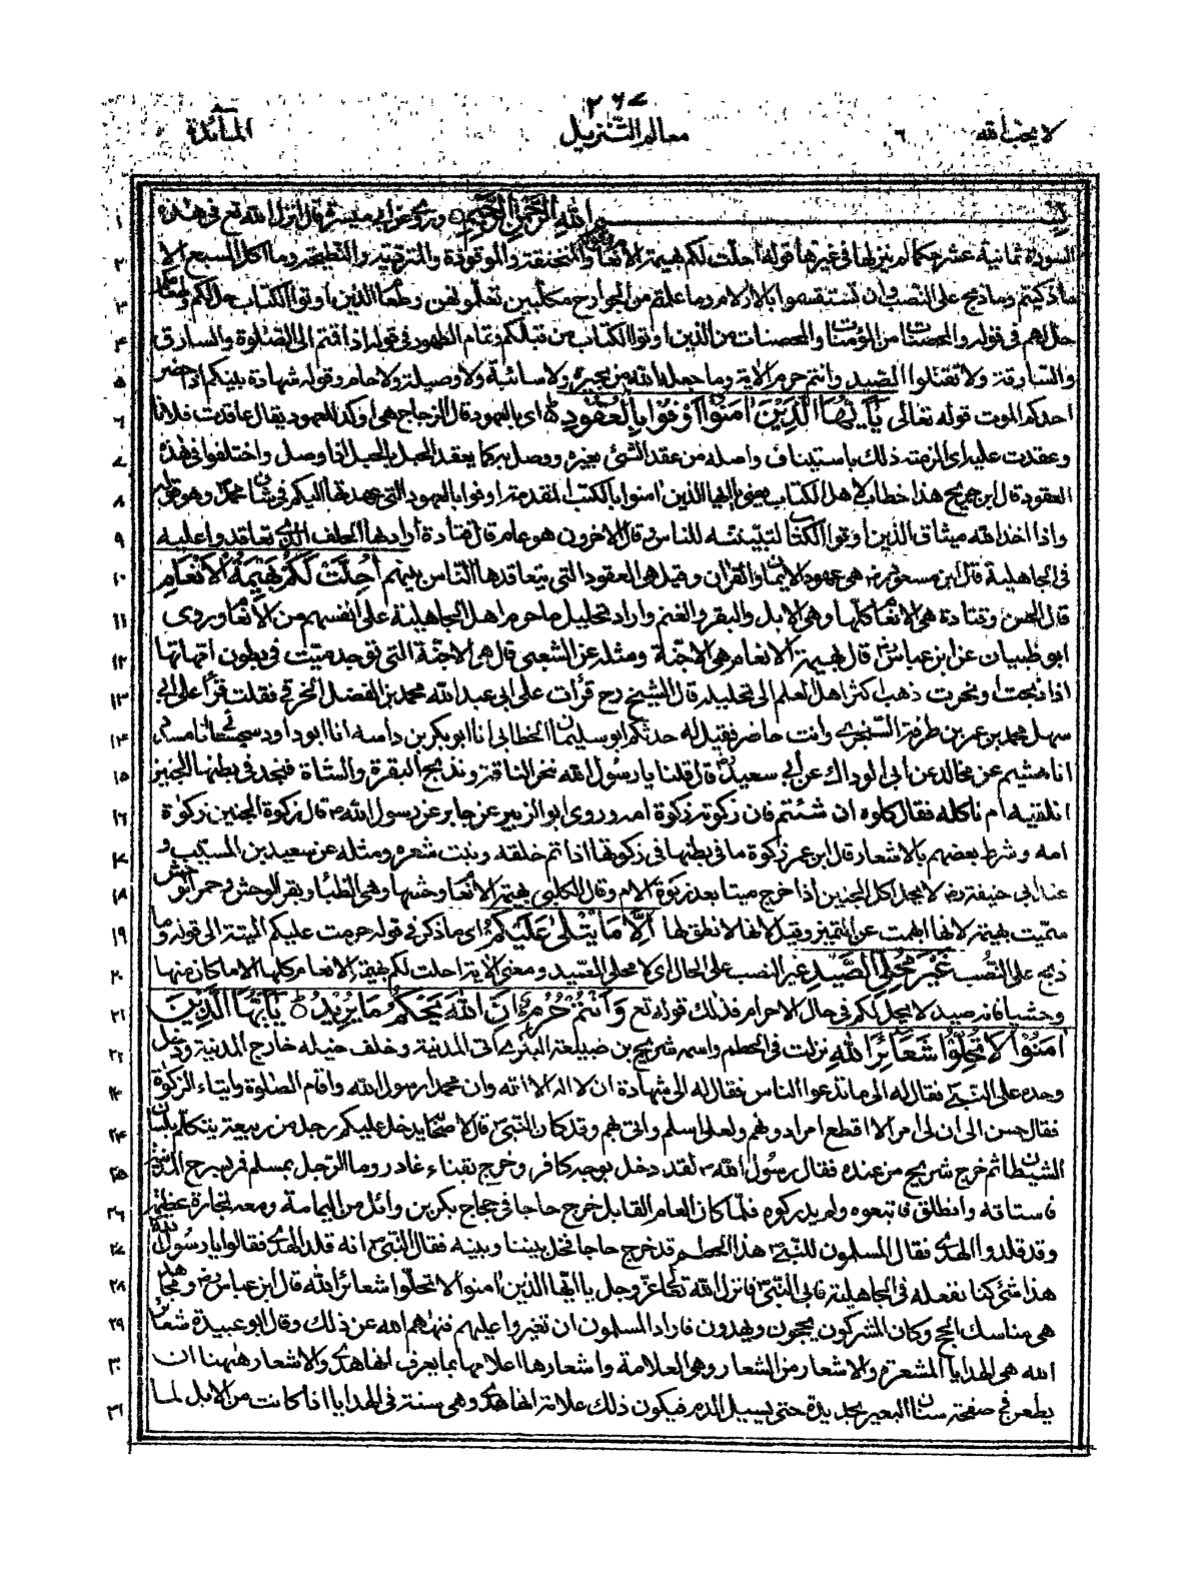 ٢٦٧
لا يحب الله ٦ معالم التنزيل المائدة
١ بسم الله الرحمن الرحيم وروى عن ابى ميسرة قال انزل الله تع فى هذه
٢ السورة ثمانية عشر حكما لم ينزلها فى غيرها قوله احلت لكم بهيمة الانعام والمنخنقة والموقوذة والمتردية والنطيحة وما اكل السبع الا
٣ ما ذكيتم وما ذبح على النصب وان تستقسموا بالازلام وما علمتم من الجوارح مكلبين تعلمونهن وطعام الذين اوتوا الكتاب حل لكم وطعامكم
٤ حل لهم فى قوله والمحصنات من المؤمنات والمحصنات من الذين اوتوا الكتاب من قبلكم وتمام الطهور فى قوله اذا قمتم الى الصلوة والسارق
٥ والسارقة ولا تقتلوا الصيد وانتم حرم الاية وما جعل الله من بحيرة ولا سائبة ولا وصيلة ولا حام وقوله شهادة بينكم اذا حضر
٦ احدكم الموت قوله تعالى يَا اَيُّهَا الَّذِيْنَ اٰمَنُوْا اَوْفُوْا بِالْعُقُوْدِ اى بالعهود قال الزجاج هى اوكد العهود يقال عاقدت فلانا
٧ وعقدت عليه اى الزمته ذلك باستيثاق واصله من عقد الشئ بغيره ووصل به كما يعقد الحبل بالحبل اذا وصل واختلفوا فى هذه
٨ العقود قال ابن جريج هذا خطاب لاهل الكتاب يعنى يا ايها الذين امنوا بالكتب المتقدمة اوفوا بالعهود التى عهدتها اليكم فى شان محمد وهو قوله
٩ واذ اخذ الله ميثاق الذين اوتوا الكتاب لتبيننه للناس وقال الاخرون هو عام قال قتادة اراد بها الحلف الذى تعاقدوا عليه
١٠ فى الجاهلية قال ابن مسعود رض هى عهود الايمان والقران وقيل هى العقود التى يتعاقدها الناس بينهم اُحِلَّتْ لَكُمْ بَهِيْمَةُ الْاَنْعَامِ
١١ قال الحسن وقتادة هى الانعام كلها وهى الابل والبقر والغنم واراد تحليل ما حرم اهل الجاهلية على انفسهم من الانعام وروى
١٢ ابو ظبيان عن ابن عباس قال بهيمة الانعام هى الاجنة ومثله عن الشعبى قال هى الاجنة التى توجد ميتة فى بطون امهاتها
١٣ اذا ذبحت او نحرت ذهب اكثر اهل العلم الى تحليله قال الشيخ رح قرأت على ابى عبد الله محمد بن الفضل الخرقى فقلت قرأ على ابى
١٤ سهل محمد بن عمر بن طرفة السنجزى وانت حاضر فقيل له حدثكم ابو سليمان الخطابى انا ابو بكر بن داسه انا ابو داود سجستانى نا مسدد
١٥ انا هشيم عن مجالد عن ابى الوداك عن ابى سعيد قال قلنا يا رسول الله ننحر الناقة ونذبح البقرة والشاة فنجد فى بطنها الجنين
١٦ انلقيه ام ناكله فقال كلوه ان شئتم فان زكوته زكوة امه وروى ابو الزبير عن جابر عن رسول الله قال زكوة الجنين زكوة
١٧ امه وشرط بعضهم بالاشعار قال ابن عمر زكوة ما فى بطنها فى زكوتها اذا تم خلقه ونبت شعره ومثله عن سعيد بن المسيب و
١٨ عند ابى حنيفة رض لا يحل اكل الجنين اذا خرج ميتا بعد زكوة الام وقال الكلبى بهيمة الانعام وحشيها وهى الظباء وبقر الوحش وحمر الوحش
١٩ سميت بهيمة لانها ابهمت عن التميز وقيل لانها لا نطق لها اِلَّا مَا يُتْلٰى عَلَيْكُمْ اى ما ذكر فى قوله حرمت عليكم الميتة الى قوله وما
٢٠ ذبح على النصب غَيْرَ مُحِلِّى الصَّيْدِ غير النصب على الحال اى لا محلى الصيد ومعنى الاية احلت لكم بهيمة الانعام كلها الا ما كان منها
٢١ وحشيا فانه صيد لا يحل لكم فى حال الاحرام فذلك قوله تع وَاَنْتُمْ حُرُمٌ اِنَّ اللهَ يَحْكُمُ مَا يُرِيْدُ يَا اَيُّهَا الَّذِيْنَ
٢٢ اٰمَنُوْا لَا تُحِلُّوْا شَعَائِرَ اللهِ نزلت فى الحطم واسمه شريح بن ضبيعة البكرى اتى المدينة وخلف خيله خارج المدينة ودخل
٢٣ وحده على النبى فقال له الى ما تدعوا الناس فقال له الى شهادة ان لا اله الا الله وان محمدا رسول الله واقام الصلوة وايتاء الزكوة
٢٤ فقال حسن الى ان لى امراء لا اقطع امرا دونهم ولعلى اسلم واتى بهم وقد كان النبى قال لاصحابه يدخل عليكم رجل من ربيعة يتكلم بلسان
٢٥ الشيطان ثم خرج شريح من عنده فقال رسول الله لقد دخل بوجه كافر وخرج بقفاء غادر وما الرجل بمسلم فمر بسرح المدينة
٢٦ فاستاقه وانطلق فاتبعوه ولم يدركوه فلما كان العام القابل خرج حاجا فى حجاج بكر بن وائل من اليمامة ومعه تجارة عظيمة
٢٧ وقد قلدوا الهدى فقال المسلمون للنبى هذا الحطم قد خرج حاجا فخل بيننا وبينه فقال النبى انه قلد الهدى فقالوا يا رسول الله
٢٨ هذا شئ كنا نفعله فى الجاهلية فابى النبى فانزل الله تعالى عز وجل يا ايها الذين امنوا لا تحلوا شعائر الله قال ابن عباس رض ومجاهد
٢٩ هى مناسك الحج وكان المشركون يحجون ويهدون فاراد المسلمون ان تغيروا عليهم فنهاهم الله عن ذلك وقال ابو عبيدة شعائر
٣٠ الله هى الهدايا المشعرة والاشعار من الشعار وهى العلامة واشعارها اعلامها بما يعرف انها هدى والاشعار ههنا ان
٣١ يطعن فى صفحة سنام البعير بحديدة حتى يسيل الدم فيكون ذلك علامة انها هدى وهى سنة فى الهدايا اذا كانت من الابل لما